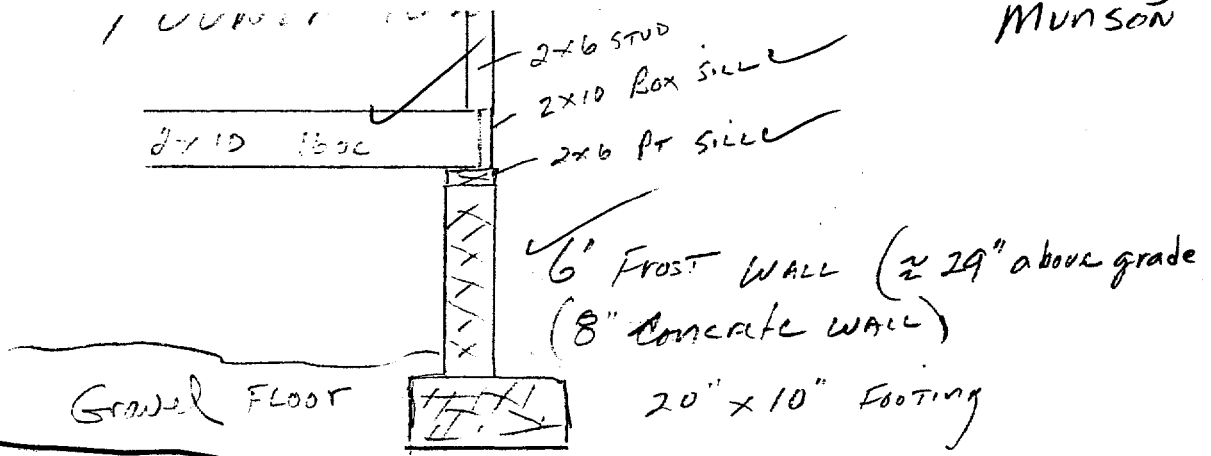 Munson
2x6 STUD
2x10 Box Sill
2x6 PT Sill
2x10 16oc
6' Frost Wall (≈ 29" above grade
(8" Concrete Wall)
Gravel Floor
20" x 10" Footing